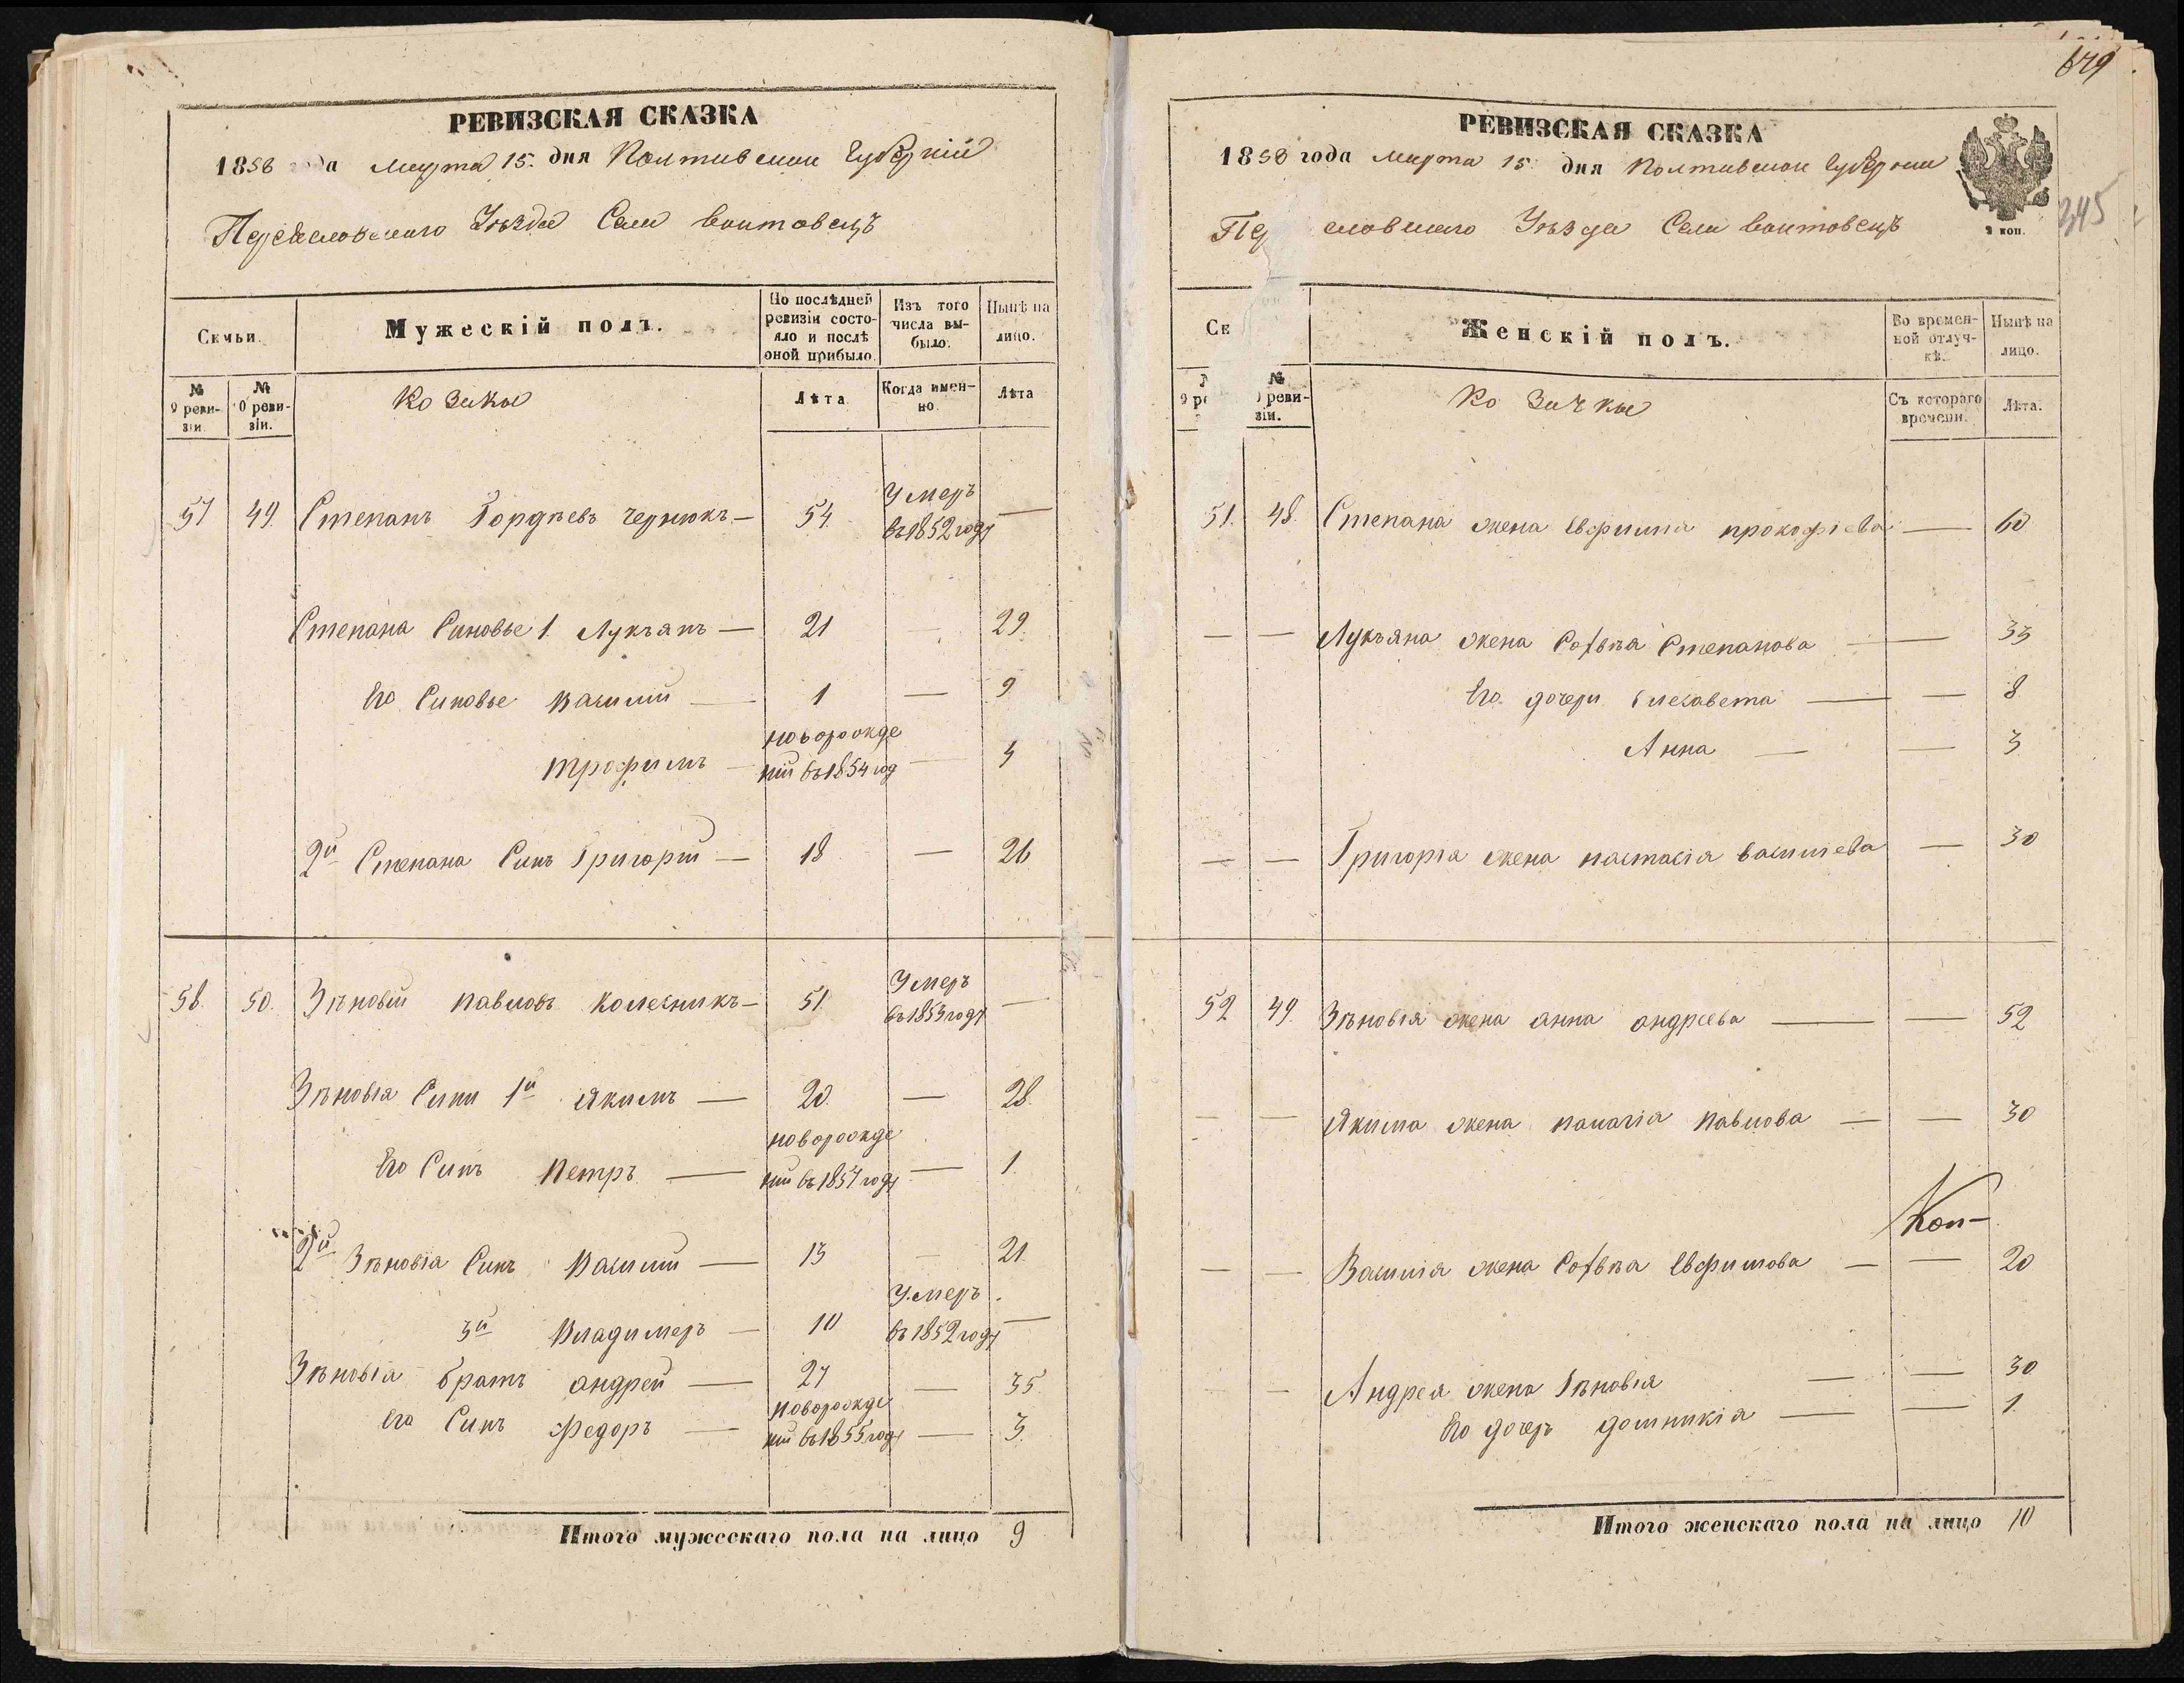 РЕВИЗСКАЯ СКАЗКА
1858 года Марта 15. дня Полтавской Губерніи
Переясловского Уѣзда Села Воитовецъ
Семьи.
Мужескій полъ.
По послѣдней ревизіи состояло и послѣ оной прибыло.
Изъ того числа выбыло.
Нынѣ на лицо.
№ 9 ревизіи.
№ 10 ревизіи.
Козаки
Лѣта
Когда именно.
Лѣта
57 49. Степанъ Гордѣевъ Чернюкъ — 54. Умеръ въ 1852 году —
Степана Синовье 1. Лукъянъ — 21 — 29.
Его Синовье Василий — 1 — 9
Трофимъ — новорожде ний въ 1854 год — 4
2й Степана Синъ Григорій — 18 — 26
58. 50. Зѣновій Павловъ Колесникъ — 51. Умеръ въ 1853 году —
Зѣновія Сини 1й Якимъ — 20. — 28.
Его Синъ Петръ — новорожде ний въ 1857 году — 1
2й Зѣновія Синъ Василий — 13 — 21.
3й Владимеръ — 10 Умеръ въ 1852 году —
Зѣновія братъ андрей — 27 — 35
его Синъ Федоръ — новорожде ний въ 1855 году — 3.
Итого мужескаго пола на лицо 9
649
345
РЕВИЗСКАЯ СКАЗКА
1858 года Марта 15. дня Полтавской Губернии
Пер словского Уѣзда Села Воитовецъ
3 коп.
Се
Женскій полъ.
Во временной отлучкѣ.
Нынѣ на лицо.
9 ре
№ 0 ревизіи.
Козачки
Съ котораго времени.
Лѣта.
51. 48. Степана жена Евфимia прокофіева — 60
— — Лукъяна жена Софѣя Степанова — — 33
Его дочери Елезавета — — 8
Анна — — 3
— — Григорія жена настасія василиева — 30
52 49. Зѣновія жена анна андреева — — 52
— — Якима жена палагія павлова — — 30
Коп—
— — Василія жена Софѣя Евфимова — — 20
— Андрея жена Зѣновія — — 30
Его дочеръ домникія — — 1.
Итого женскаго пола на лицо 10